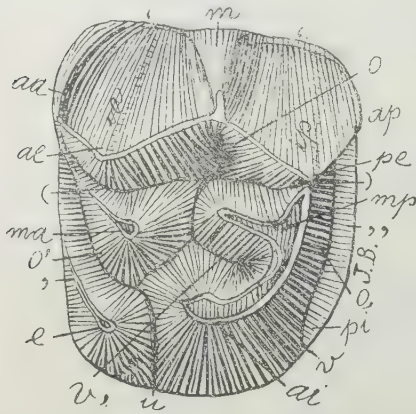 m
aa
o
ae
ap
pe
(
)
mp
ma
,,
o'
J.B.
,
o,
e
pi
v
v,
u
ai